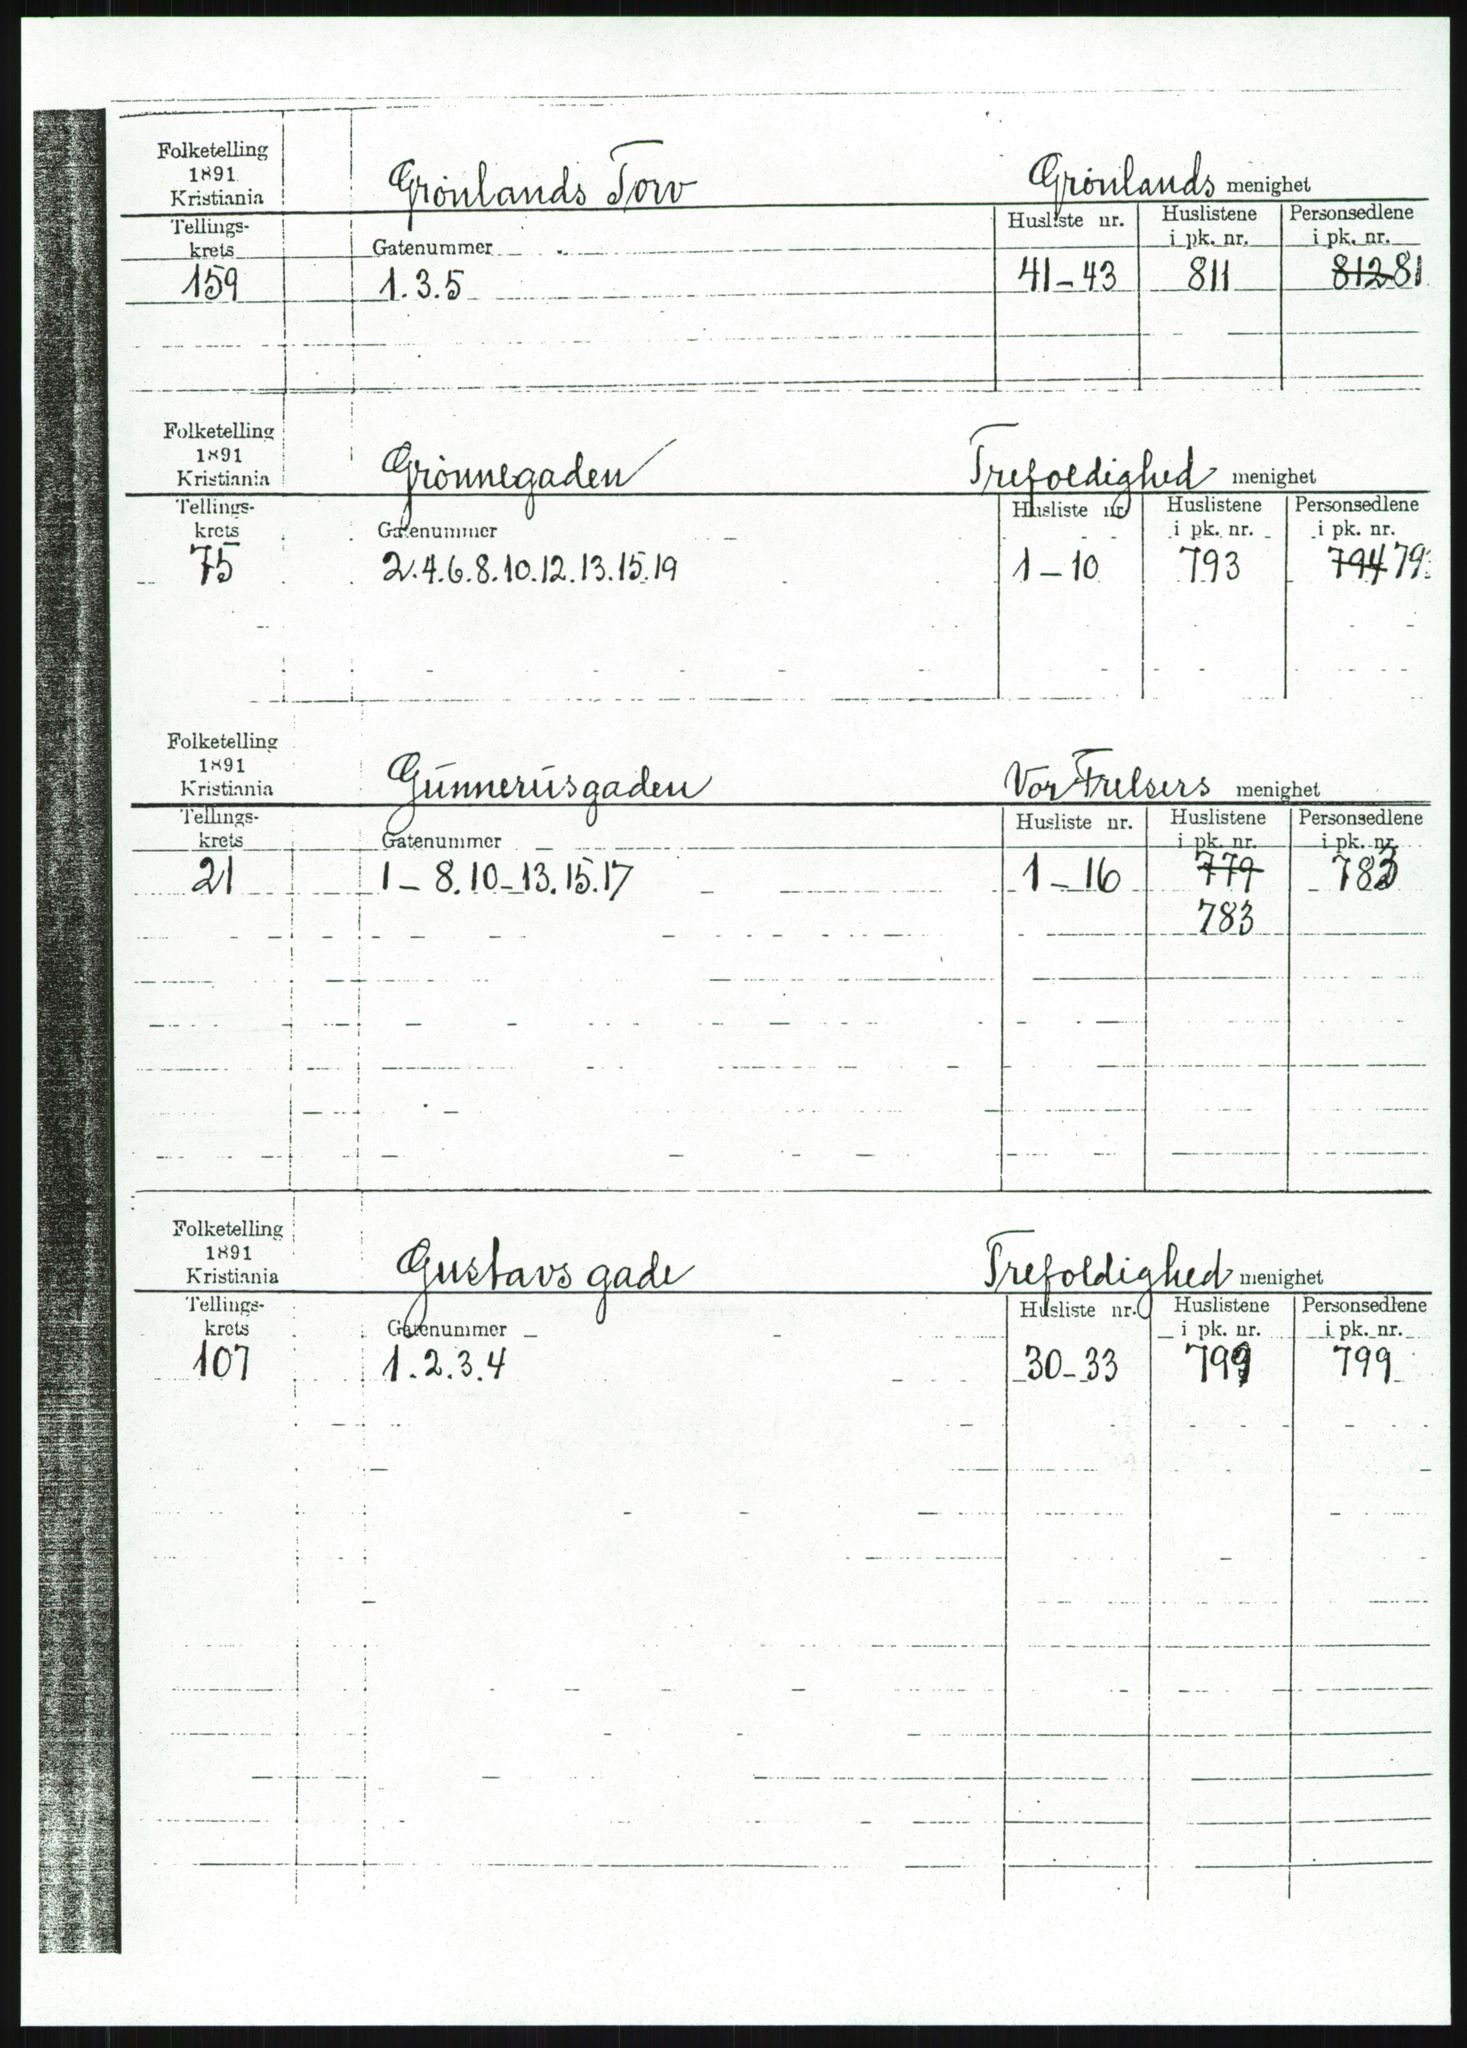 Folketelling
1891
Kristiania
Grönlands Torv
Grönlands menighet
Tellings-
krets
Gatenummer
Husliste nr.
Huslistene
i pk. nr.
Personsedlene
i pk. nr.
159 1.3.5 41-43 811 812 81
Folketelling
1891
Kristiania
Grönnegaden
Trefoldighed menighet
Tellings-
krets
Gatenummer
Husliste nr.
Huslistene
i pk. nr.
Personsedlene
i pk. nr.
75 2.4.6.8.10.12.13.15.19 1-10 793 794 79
Folketelling
1891
Kristiania
Gunnerusgaden
Vor Frelsers menighet
Tellings-
krets
Gatenummer
Husliste nr.
Huslistene
i pk. nr.
Personsedlene
i pk. nr.
21 1-8.10-13.15.17 1-16 779 783
783
Folketelling
1891
Kristiania
Gustavs gade
Trefoldighed menighet
Tellings-
krets
Gatenummer
Husliste nr.
Huslistene
i pk. nr.
Personsedlene
i pk. nr.
107 1.2.3.4 30-33 799 799